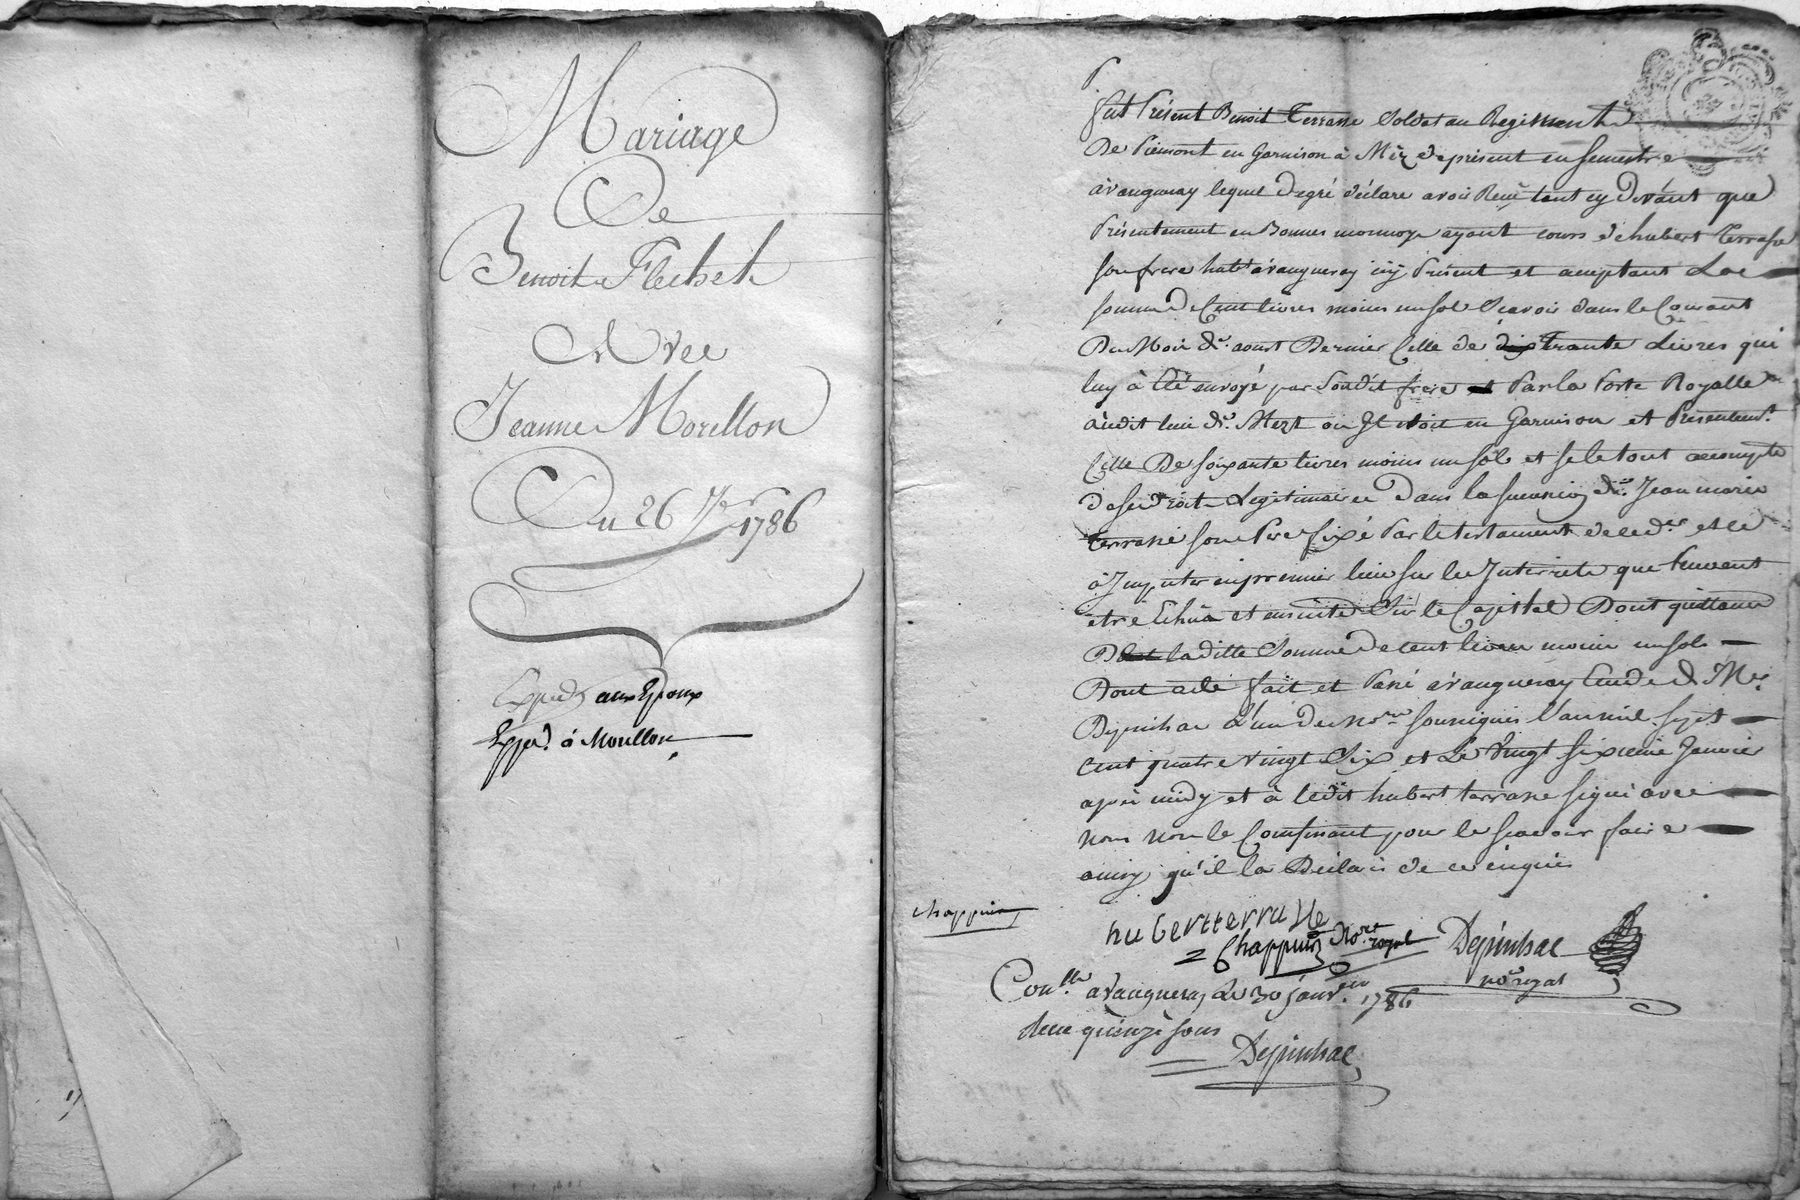 Mariage
De
Benoit Flechet
Avec
Jeanne Morillon
Du 26 Jer 1786
Expedé aux Epoux
Expedé à Morillon
fut Présent Benoit Terrasse Soldat au Regiment
De Piémont en Garnison à Metz deprésent en semestre
à vaugneray lequel de gré déclare avoir Receu tant cy devant que
Présentement en Bonnes monnoye ayant cours d'hubert Terrasse
son frere habt à vaugneray icy Présent et acceptant La
somme de Cent livres moins un sol Scavoir dans le Courant
Du Mois d'aoust Dernier Celle de Trante Livres qui
luy à été envoyé par Sondit frere Par la Poste Royalle
audit lieu de Metz ou Il etoit en Garnison et Présentemt
Celle De soixante livres moins un sol et se le tout accompte
de ses droits Legitimaires Dans la succession de Jean marie
terrasse son Pere fixé Par le testament de ce dr et ce
à Imputer en premier lieu sur les Interrets que Peuvent
etre Echus et ensuite Sur le Capittal Dont quittance
De laditte Somme de cent livres moins un sol
Dont acte fait et Passé à vaugneray Etude de Me
Depinhac L'un des nores soussignés L'an mil sept
Cent quatre Vingt Six et Le Vingt sixieme Janvier
après midy et à ledit hubert terrasse signé avec
Nous Non le Confessant pour le scavoir faire
ainsy qu'il la Déclaré de ce enquis
chappuis
hubertterrasse
Chappuis Nore royal
Depinhac
nore royal
Conllé à Vaugneray Le 30 janvier 1786
Recu quinze sous
Depinhac